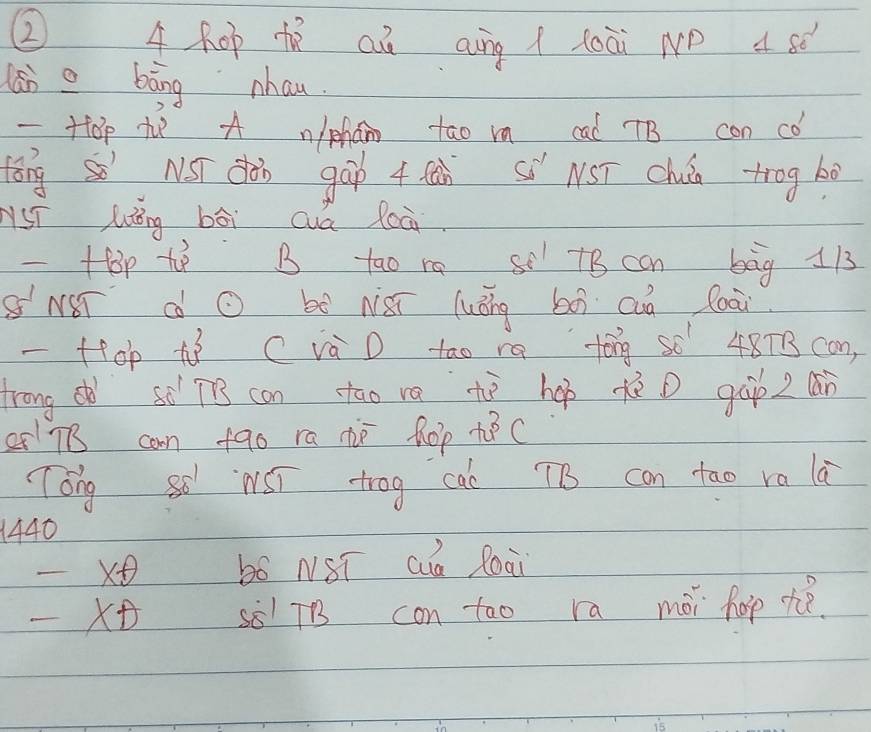 ② 4 hợp tử của cùng 1 loài NP 1 số
lần ⊙ bằng nhau.
- Hợp tử A n/phân tạo ra các TB con có
tổng số NST đơn gấp 4 lần số NST chứa trog bộ
NST lưỡng bội của loài.
- Hợp tử B tạo ra số TB con bằg 1/3
số NST có ⊙ bộ NST lưỡng bội của loài.
- Hợp tử C và D tạo ra tổng số 48TB con,
trong đó số TB con tạo ra từ hợp tử D gấp 2 lần
số TB con tạo ra từ hợp tử C
Tổng số NST trog các TB con tạo ra là
1440
- XĐ bộ NST của loài
- XĐ số TB con tạo ra mỗi hợp tử.
10 15